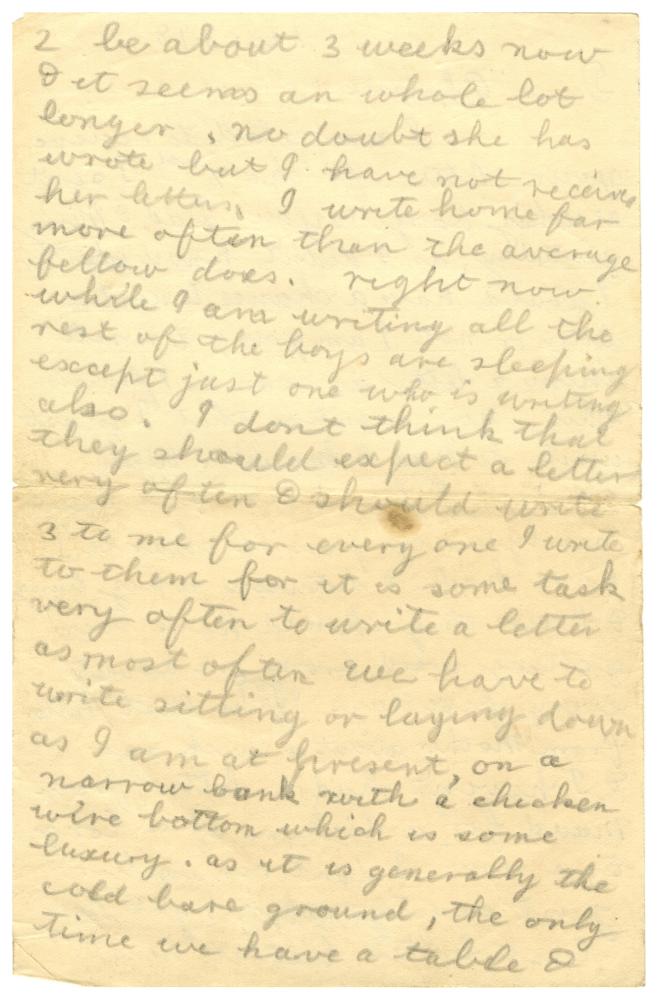 2 be about 3 weeks now
& it seems an whole lot
longer, no doubt she has
wrote but I have not receive
her letters, I write home far
more often than the average
fellow does. right now
while I am writing all the
rest of the boys are sleeping
except just one who is writing
also. I dont think that
they should expect a letter
very often & should write
3 to me for every one I write
to them for it is some task
very often to write a letter
as most often we have to
write sitting or laying down
as I am at present, on a
narrow bunk with a chicken
wire bottom which is some
luxury. as it is generally the
cold bare ground, the only
time we have a table &